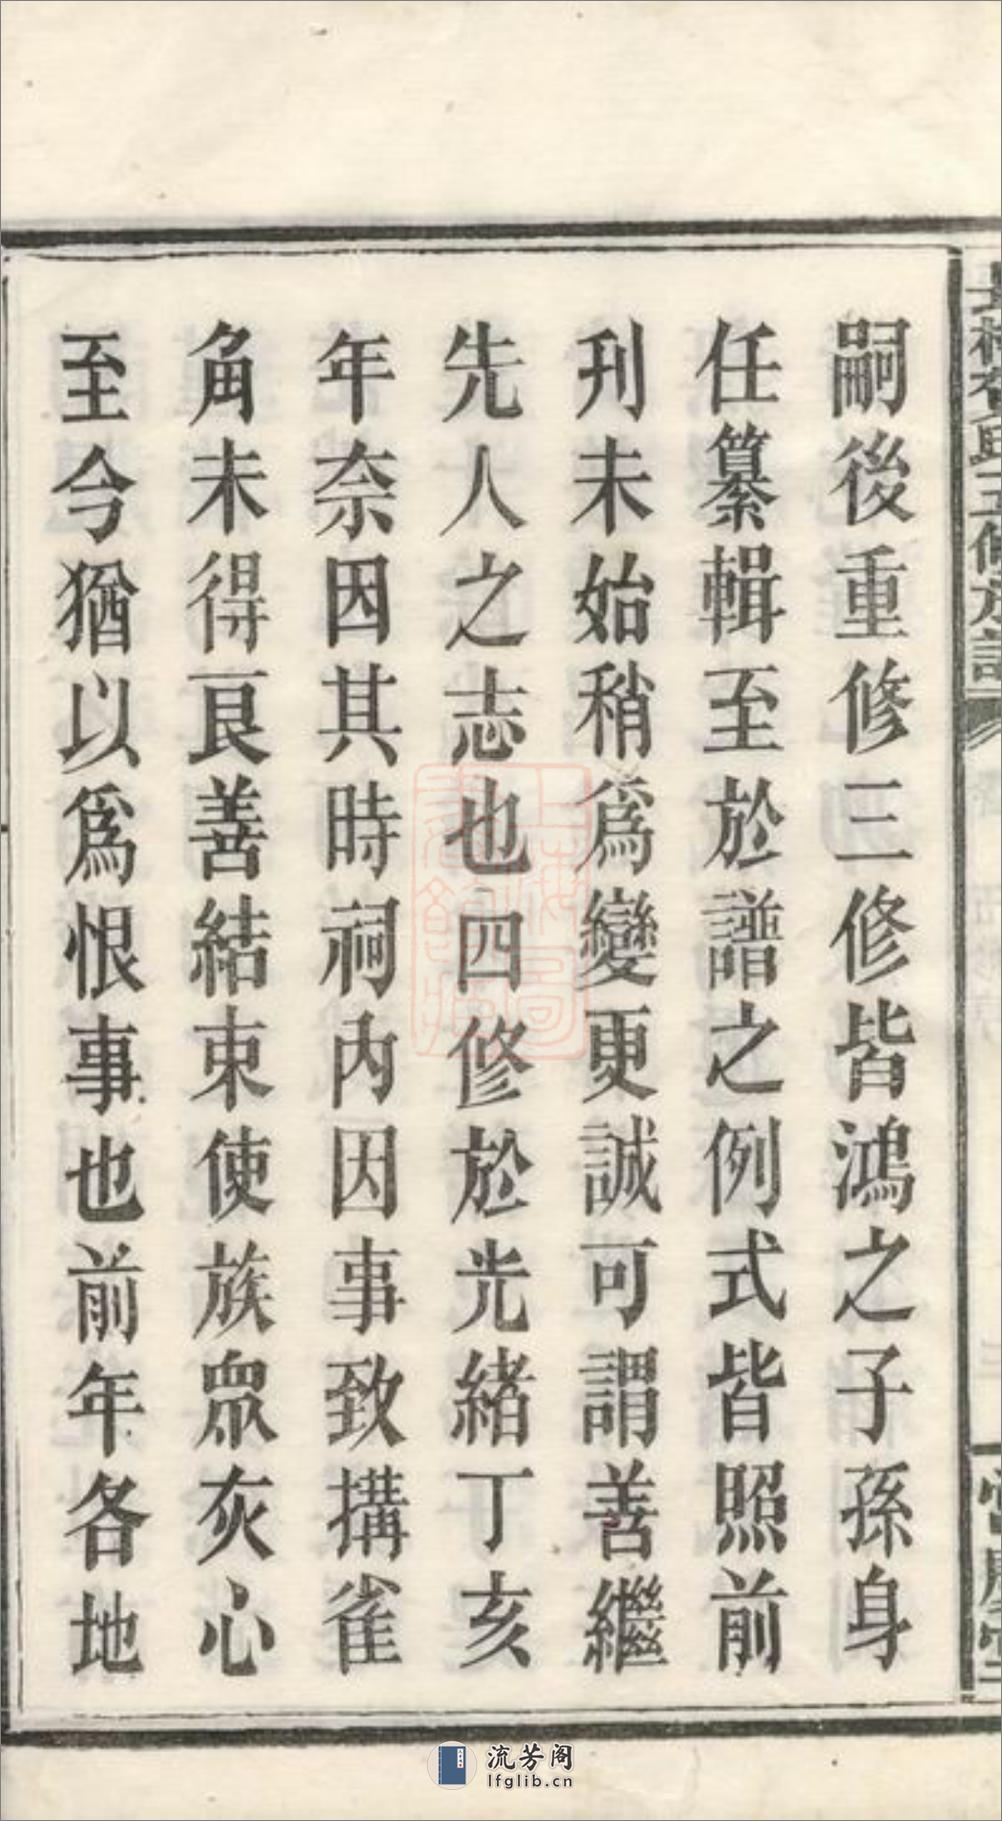 嗣後重修三修皆鴻之子孫身
任纂輯至於譜之例式皆照前
刋未始稍爲變更誠可謂善繼
先人之志也四修於光緒丁亥
年奈因其時祠內因事致搆雀
角未得艮善結束使族眾灰心
至今猶以爲恨事也前年各地
流芳阁
lfglib.cn